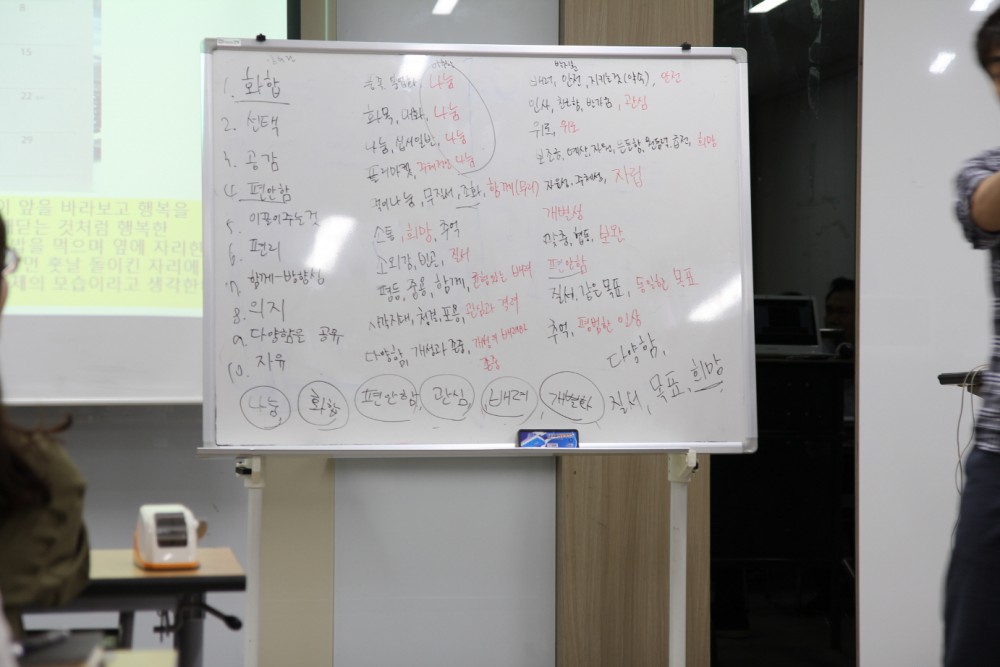 8
15
22
29
이 앞을 바라보고 행복을
닫는 것처럼 행복한
밥을 먹으며 옆에 자리한
면 훗날 돌이킨 자리에
체의 모습이라고 생각한
1. 화합
2. 선택
3. 공감
4. 편안함
5. 이끌어주는것
6. 편리
7. 함께-방향성
8. 의지
9. 다양함을 공유
10. 자유
나눔
화목, 대화, 나눔
나눔, 십시일반, 나눔
프리마켓, 나눔
무질서, 조화, 함께(우리)
소통, 희망, 추억
소외감, 빈곤, 질서
평등, 중용, 함께, 균형있는 배려
사각지대, 청결, 포용, 관심과 격려
다양함, 개성과 존중, 존중
배려, 안전, 지키도록(약속), 안전
인사, 친근함, 반가움, 관심
위로, 위로
보조금, 예산, 지원, 든든함, 원동력, 협력, 희망
자율성, 주체성, 자립
개방성
맞춤, 협동, 보완
편안함
질서, 같은목표, 동일한 목표
추억, 평범한 인상
나눔, 화합, 편안함, 관심, 배려, 질서, 목표, 희망
다양함,